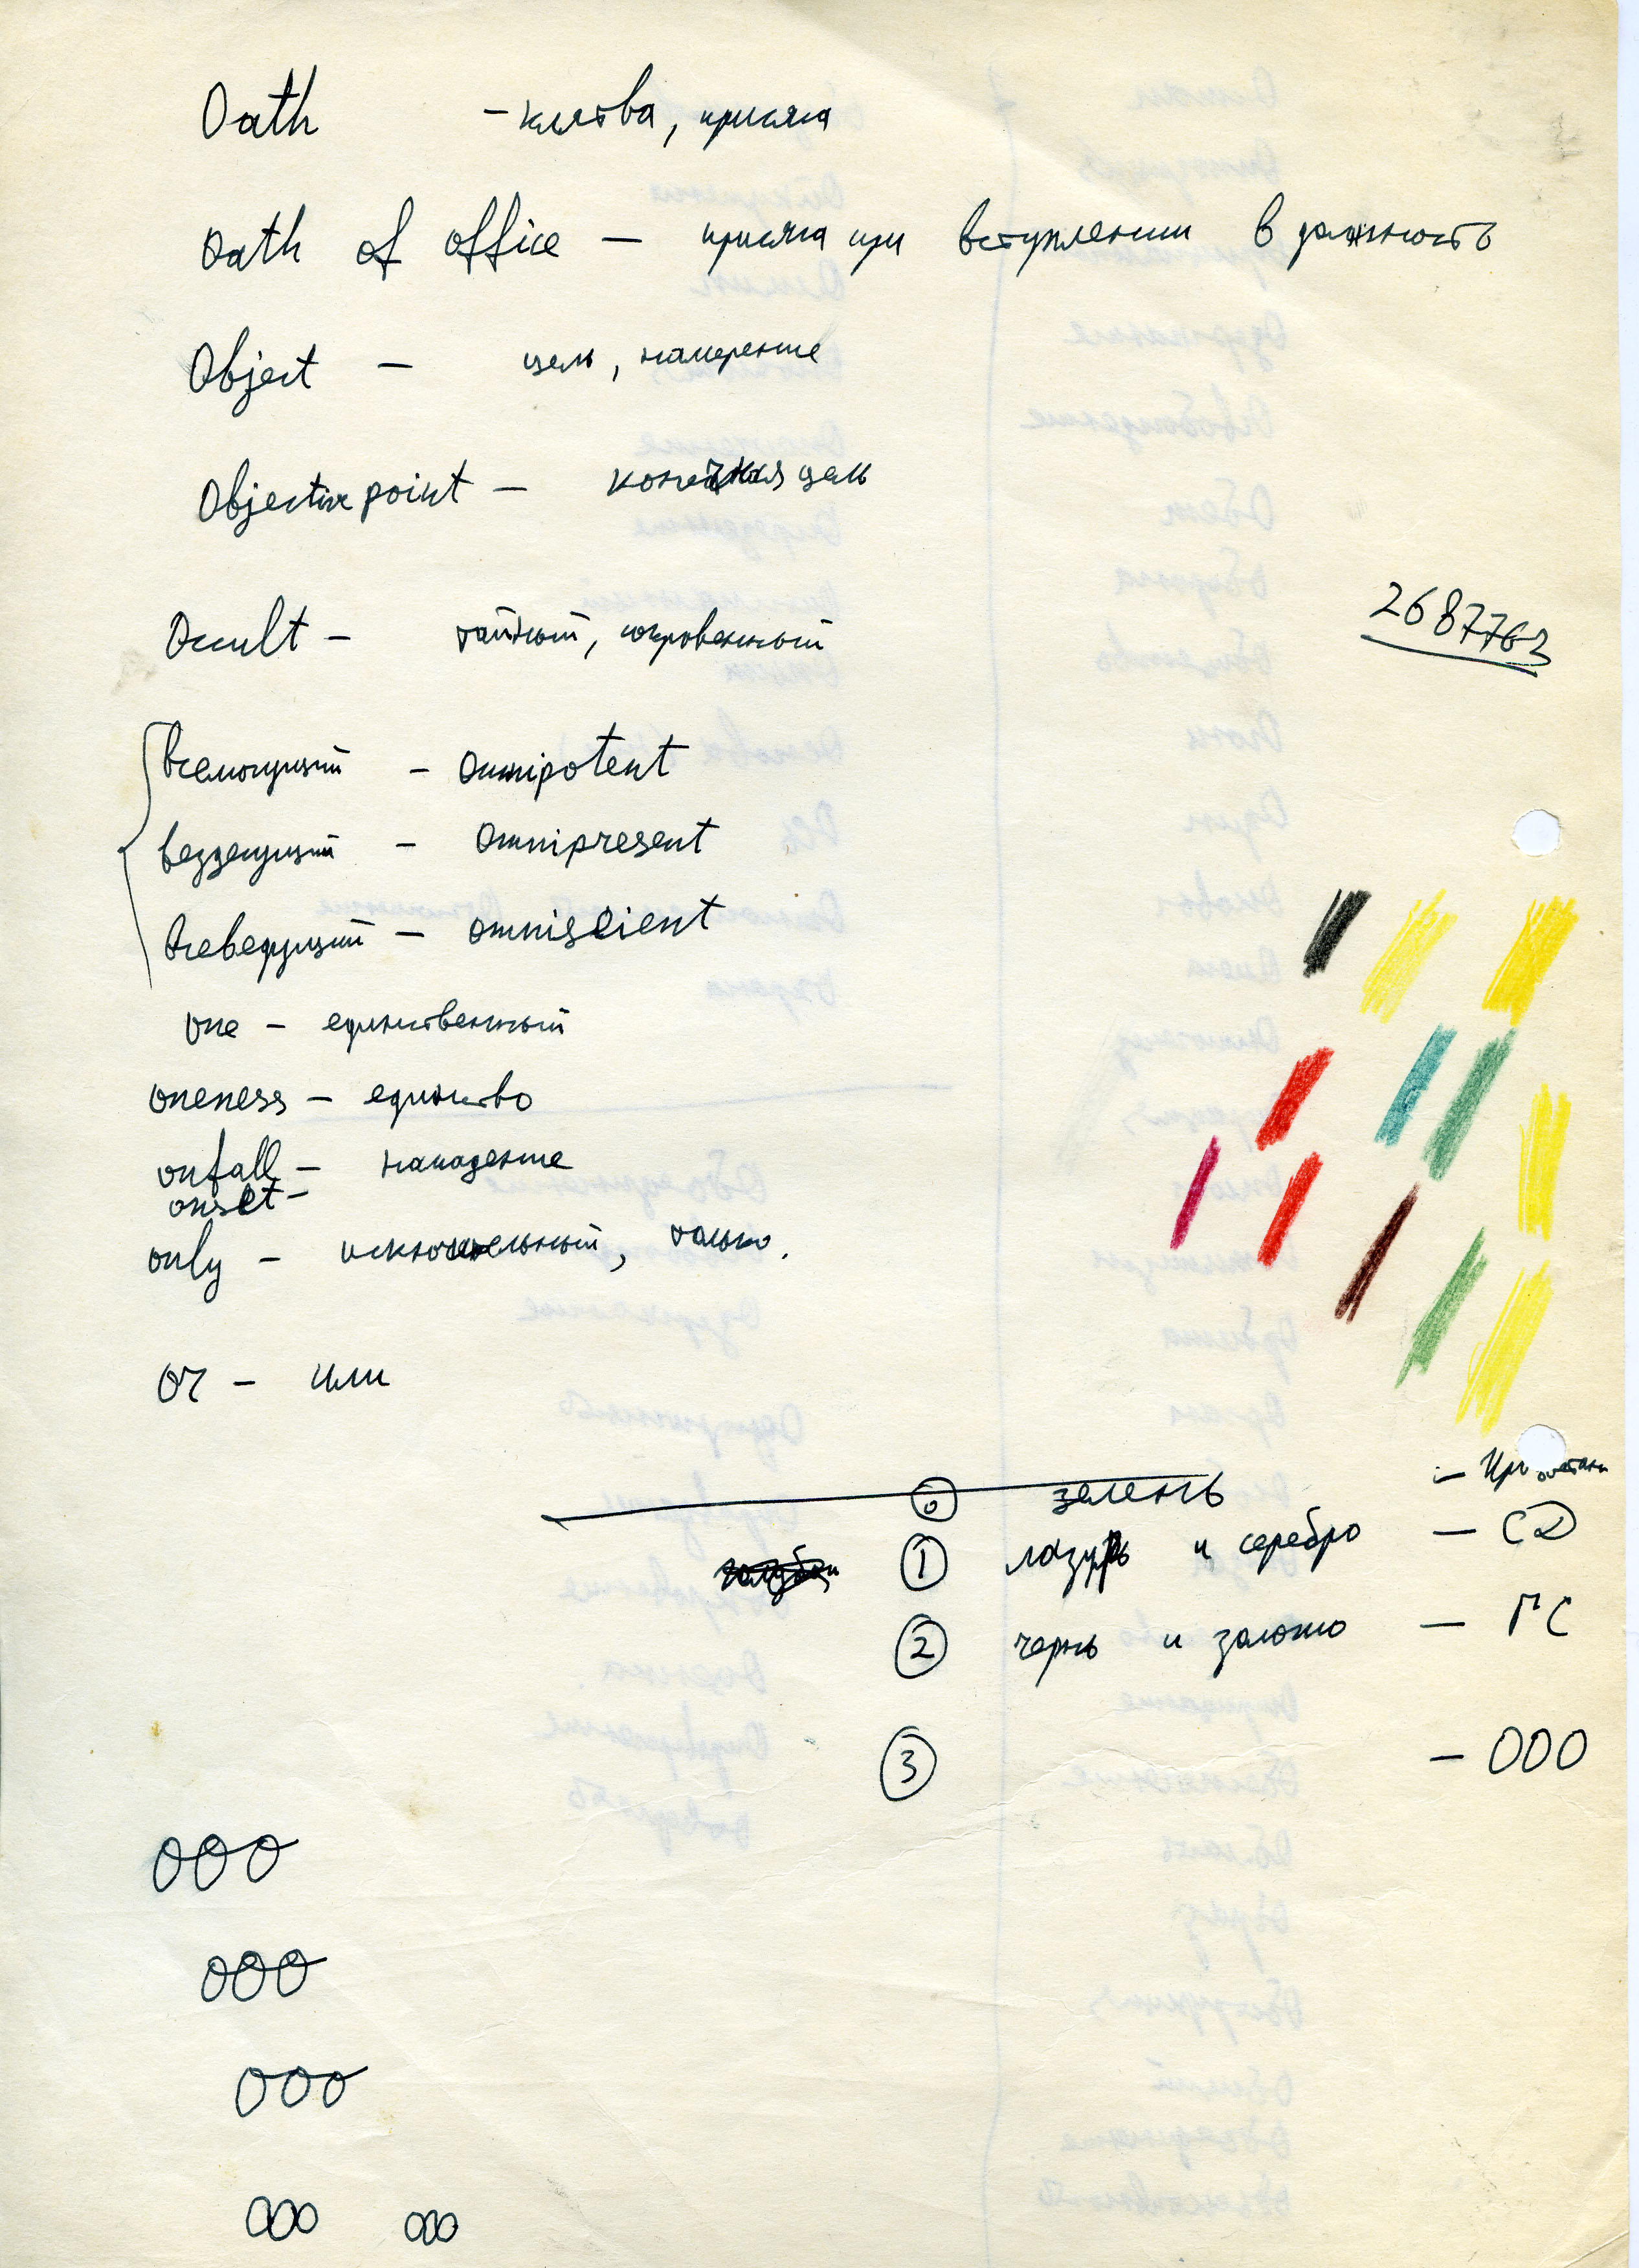 Oath - клятва, присяга
Oath of office — присяга при вступлении в должность
Object — цель, намерение
Objective point — конечная цель
Occult — тайный, сокровенный
2687763
всемогущий — omnipotent
вездесущий — omnipresent
всеведущий — omniscient
one — единственный
oneness — единство
onfall — нападение
onset —
only — исключительный, только.
or — или
0 зелень —
1 лазурь и серебро — СД
2 чернь и золото — ГС
3 — ООО
ООО
ООО
ООО
ООО ООО